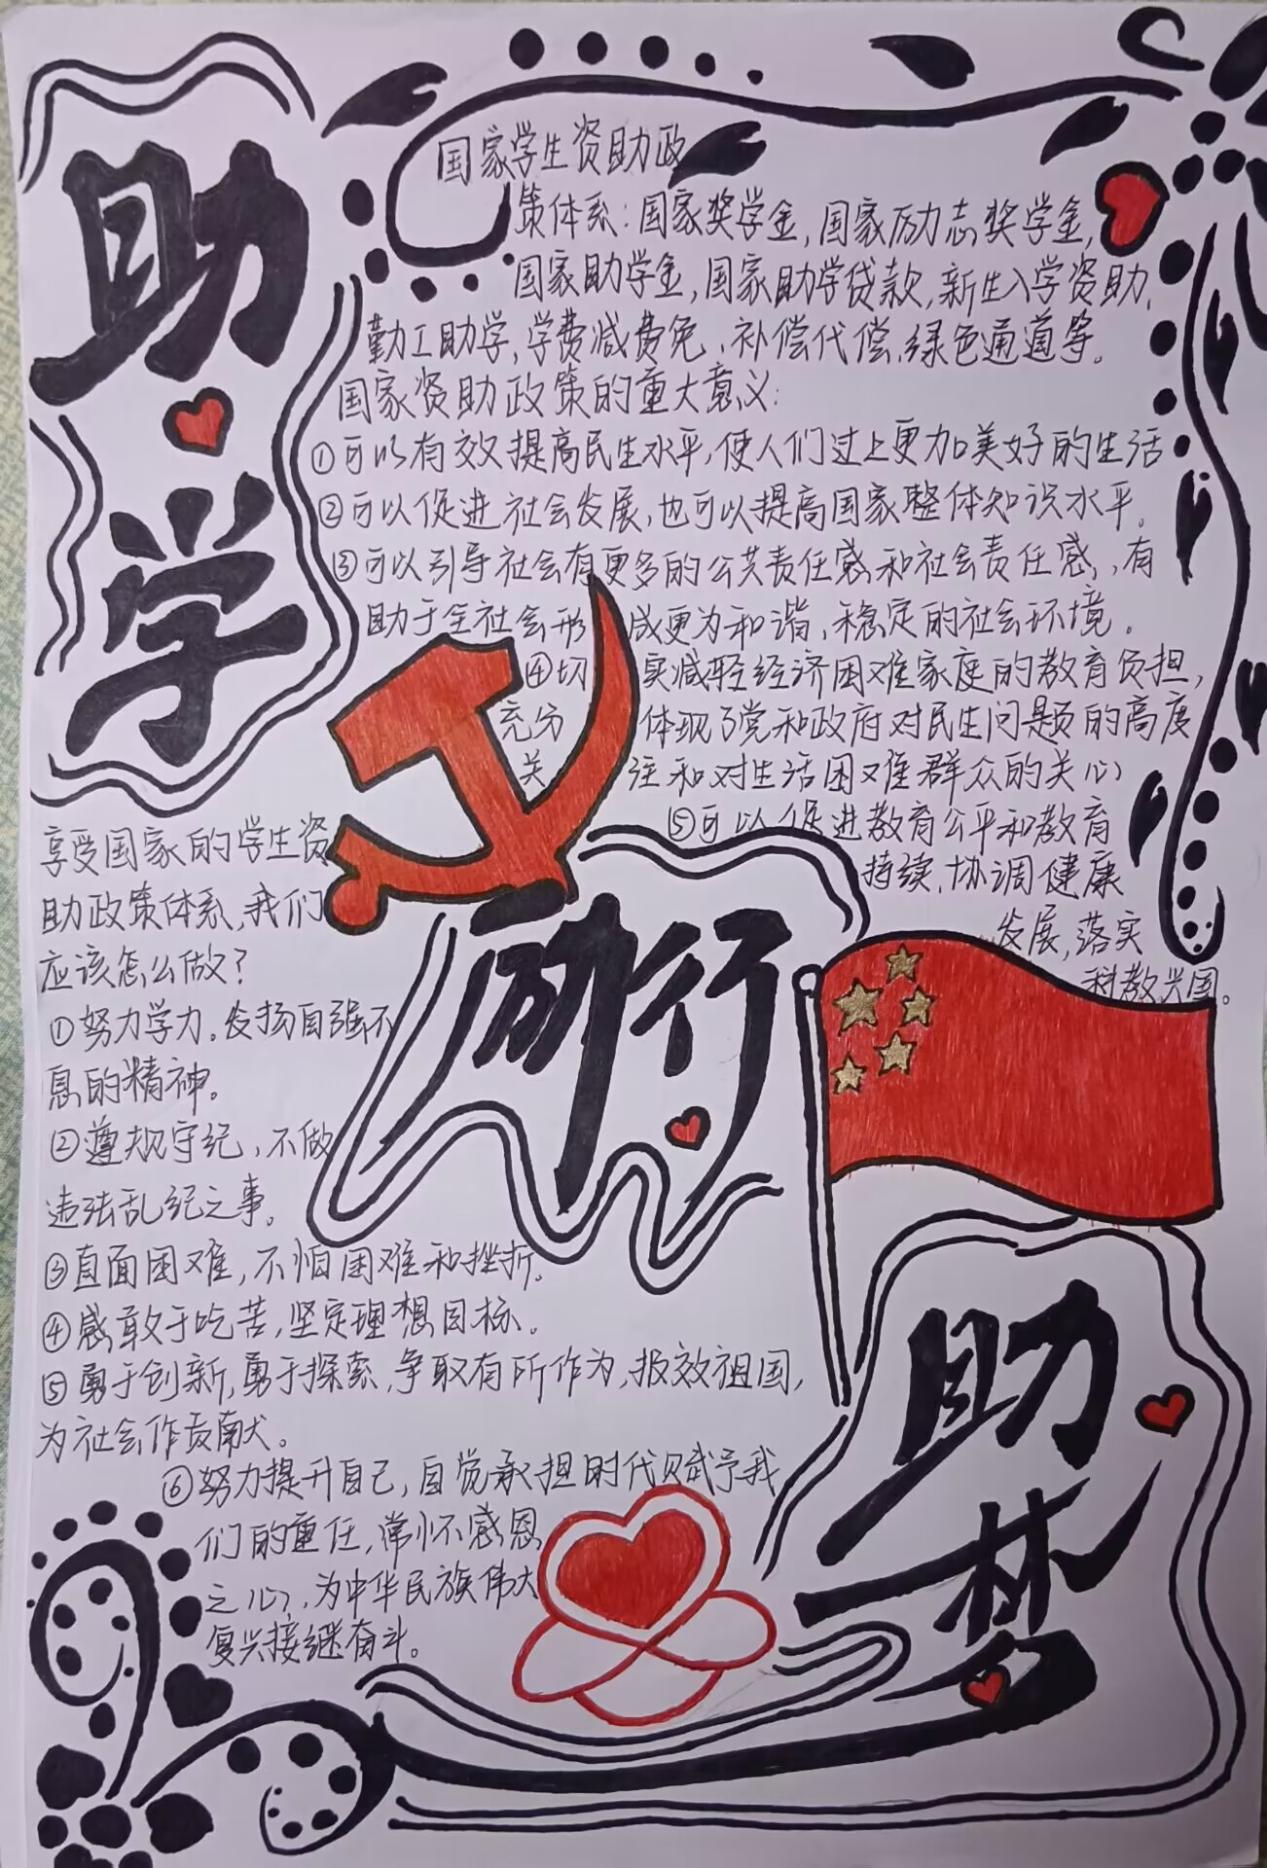 助
学
国家学生资助政
策体系：国家奖学金，国家励志奖学金，
国家助学金，国家助学贷款，新生入学资助，
勤工助学，学费减费免，补偿代偿，绿色通道等。
国家资助政策的重大意义：
①可以有效提高民生水平，使人们过上更加美好的生活
②可以促进社会发展，也可以提高国家整体知识水平。
③可以引导社会有更多的公共责任感和社会责任感，有
助于全社会形成更为和谐、稳定的社会环境。
④切实减轻经济困难家庭的教育负担，
充分体现了党和政府对民生问题的高度
关注和对生活困难群众的关心
⑤可以促进教育公平和教育
持续，协调健康
发展，落实
科教兴国。
享受国家的学生资
助政策体系，我们
应该怎么做？
①努力学力。发扬自强不
息的精神。
②遵规守纪，不做
违法乱纪之事。
③直面困难，不怕困难和挫折。
④感敢于吃苦，坚定理想目标。
⑤勇于创新，勇于探索，争取有所作为，报效祖国，
为社会作贡献。
⑥努力提升自己，自觉承担时代赋予我
们的重任，常怀感恩
之心，为中华民族伟大
复兴接继奋斗。
励行
助
梦